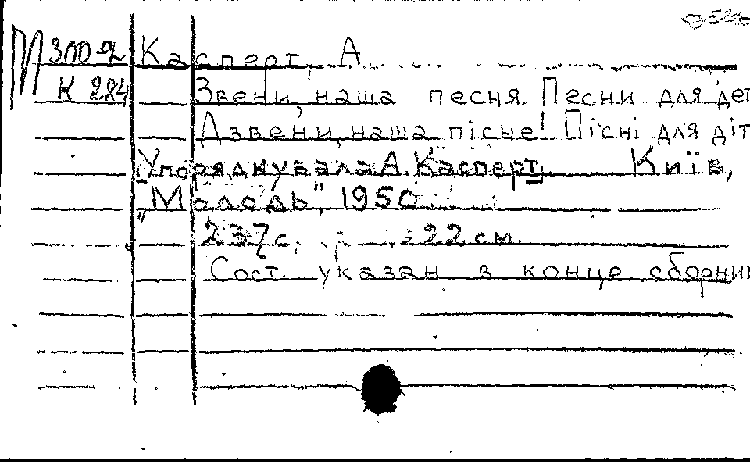 М 300-2 Касперт, А
К 284 Звени, наша песня. Песни для дет
Дзвени, наша пісне! Пісні для діт
Упорядкувала А. Касперт. Київ,
"Молодь", 1950
237 с. 22 см.
Сост. указан в конце сборник